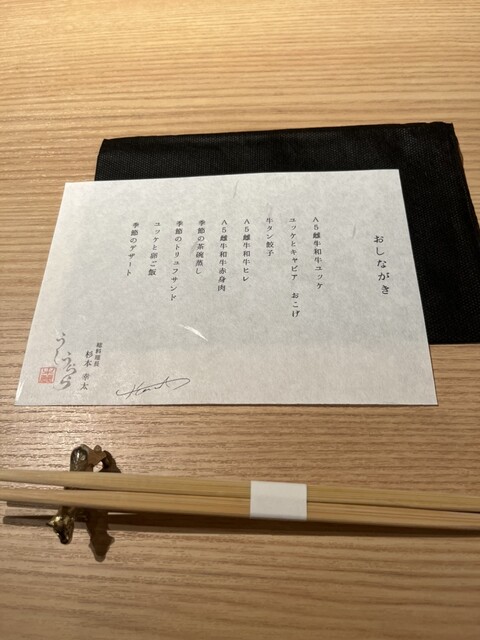 おしながき
A5雌牛和牛ユッケ
ユッケとキャビア おこげ
牛タン餃子
A5雌牛和牛ヒレ
A5雌牛和牛赤身肉
季節の茶碗蒸し
季節のトリュフサンド
ユッケと卵ご飯
季節のデザート
総料理長
杉本 幸太